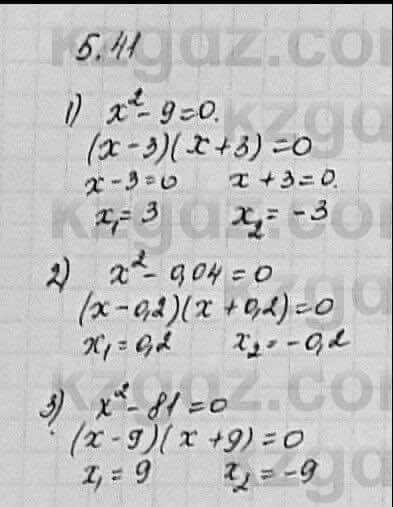 5.41
1) x² - 9 = 0.
(x - 3)(x + 3) = 0
x - 3 = 0 x + 3 = 0.
x₁ = 3 x₂ = -3
2) x² - 0,04 = 0
(x - 0,2)(x + 0,2) = 0
x₁ = 0,2 x₂ = -0,2
3) x² - 81 = 0
(x - 9)(x + 9) = 0
x₁ = 9 x₂ = -9